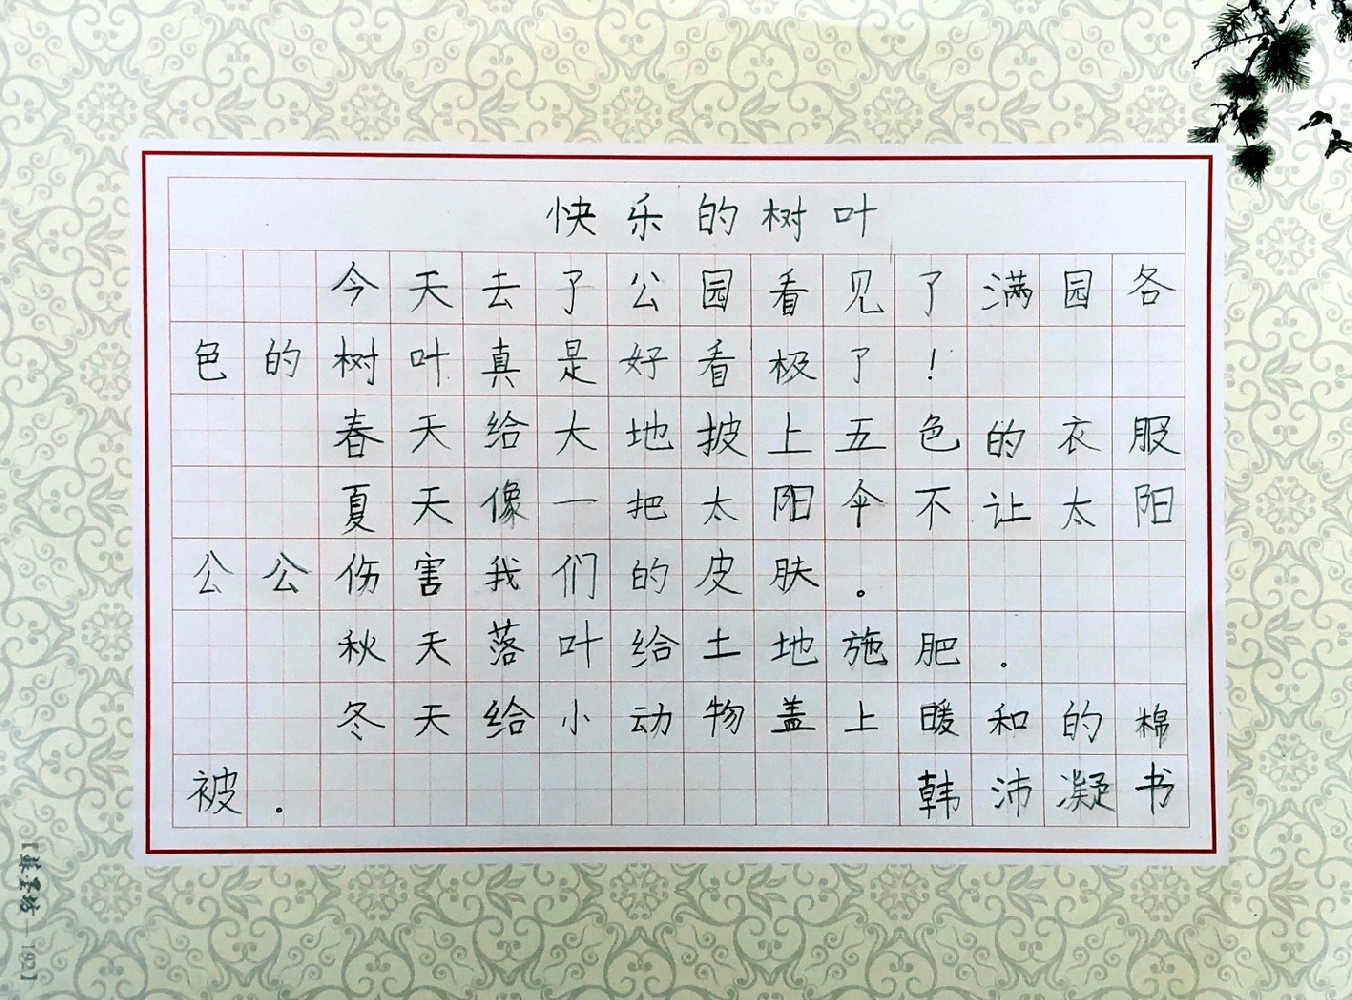 快乐的树叶
今天去了公园看见了满园各
色的树叶真是好看极了！
春天给大地披上五色的衣服
夏天像一把太阳伞不让太阳
公公伤害我们的皮肤。
秋天落叶给土地施肥.
冬天给小动物盖上暖和的棉
被。
韩沛凝书